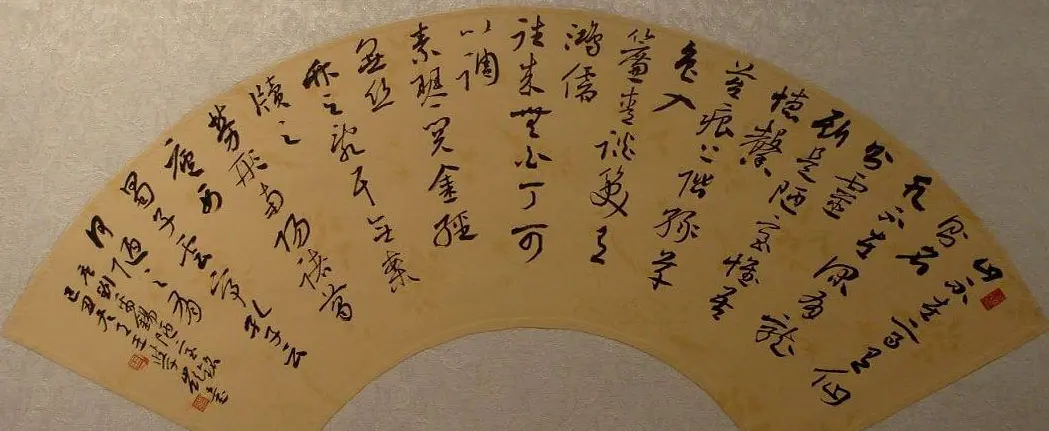 山不在高有仙
則名
水不在深有龍
則靈
斯是陋室惟吾
德馨
苔痕上階綠草
色入
簾青談笑有
鴻儒
往來無白丁可
以調
素琴閱金經
無絲
竹之亂耳無案
牘之
勞形南陽諸葛
廬西
蜀子雲亭孔子云
何陋之有
唐劉禹錫陋室銘
己丑